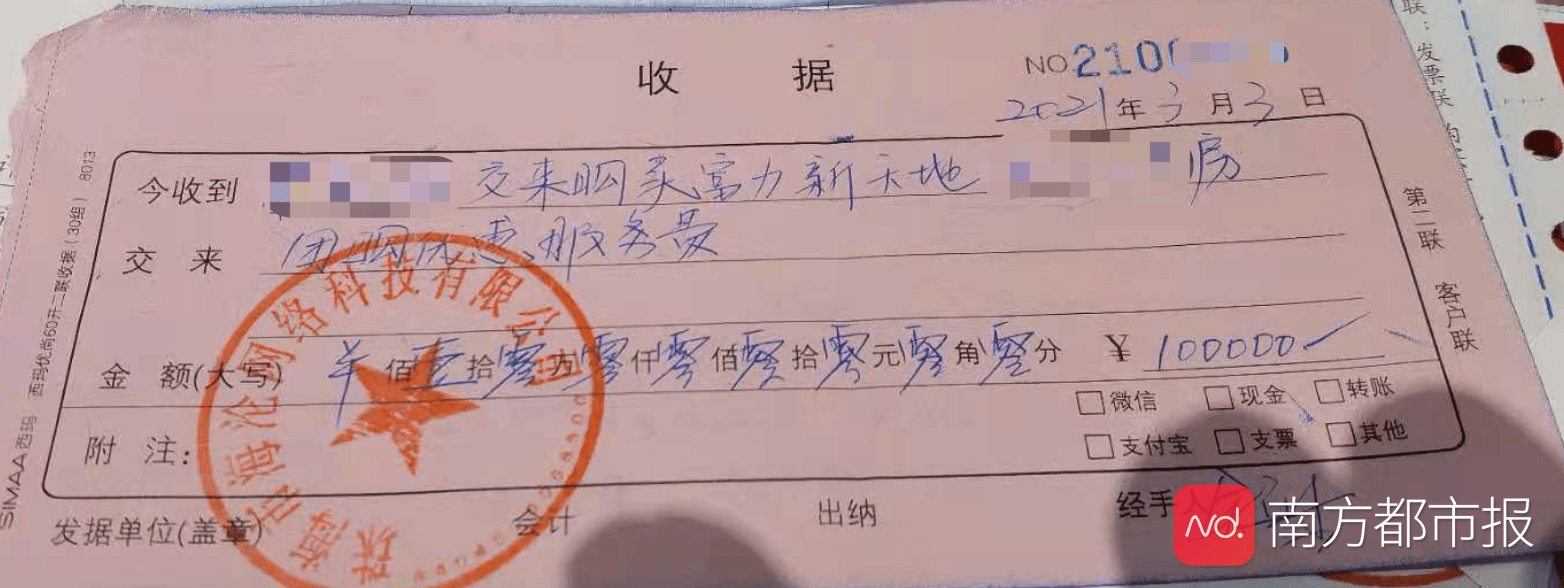 收 据
NO 210
2021年3月3日
今收到 交来购买富力新天地 房
交 来 团购优惠服务费
金 额(大写) 羊佰壹拾零万零仟零佰零拾零元零角零分 ¥ 100000
□微信 □现金 □转账
附 注: □支付宝 □支票 □其他
发据单位(盖章) 会计 出纳 经手
珠海 海沧网络科技有限公司
第二联 客户联
SIMAA 西玛 西玛优尚60开二联收据(30组) 8013
联:发票联
nd. 南方都市报